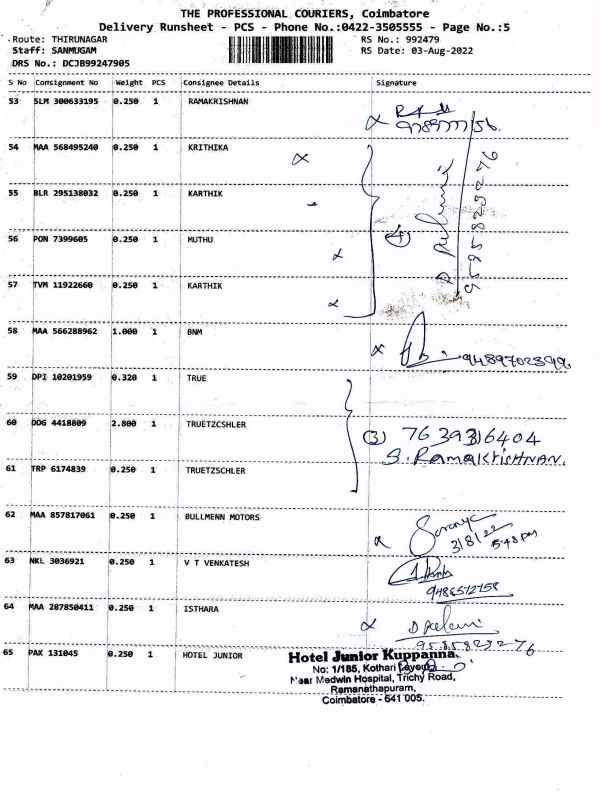 THE PROFESSIONAL COURIERS, Coimbatore
Delivery Runsheet - PCS - Phone No.:0422-3505555 - Page No.:5
Route: THIRUNAGAR RS No.: 992479
Staff: SANMUGAM RS Date: 03-Aug-2022
DRS No.: DCJB99247905
S No Consignment No Weight PCS Consignee Details Signature
53 SLM 300633195 0.250 1 RAMAKRISHNAN
54 MAA 568495240 0.250 1 KRITHIKA
55 BLR 295138032 0.250 1 KARTHIK
56 PON 7399605 0.250 1 MUTHU
(4)
57 TVM 11922660 0.250 1 KARTHIK
58 MAA 566288962 1.000 1 BNM
59 DPI 10201959 0.320 1 TRUE
60 DDG 4418809 2.800 1 TRUETZCSHLER
(3) 7639316404
S. Ramakrishnan.
61 TRP 6174839 0.250 1 TRUETZSCHLER
62 MAA 857817061 0.250 1 BULLMENN MOTORS
Saranya
3/8/22
5:48 PM
63 NKL 3036921 0.250 1 V T VENKATESH
9486512158
64 MAA 287850411 0.250 1 ISTHARA
65 PAK 131045 0.250 1 HOTEL JUNIOR
Hotel Junior Kuppanna
No: 1/185, Kothari Layout
Near Medwin Hospital, Trichy Road,
Ramanathapuram,
Coimbatore - 641 005.